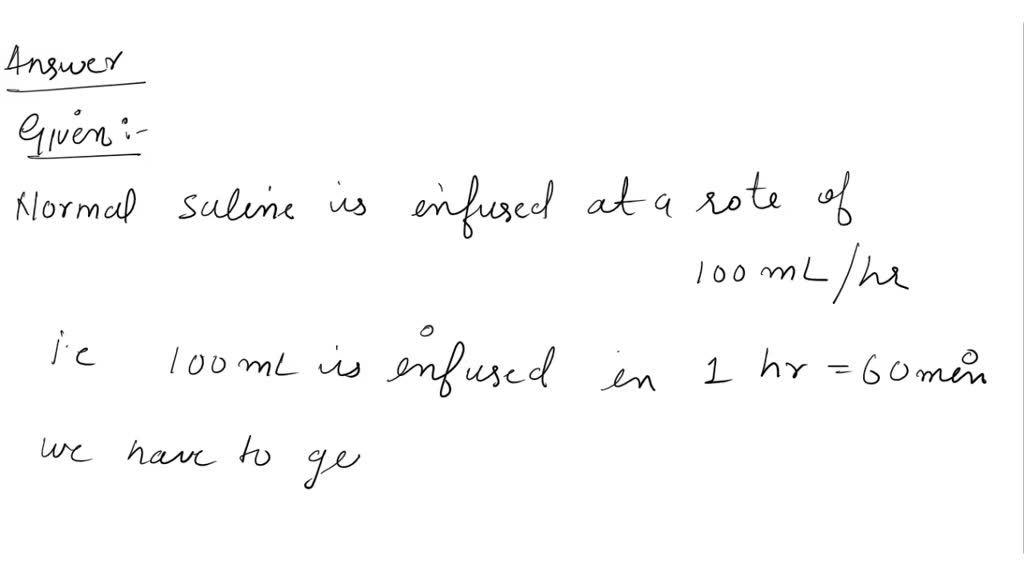 Answer
Given :-
Normal saline is infused at a rote of
100 mL/hr
i.e 100 mL is infused in 1 hr = 60 min
we have to ge